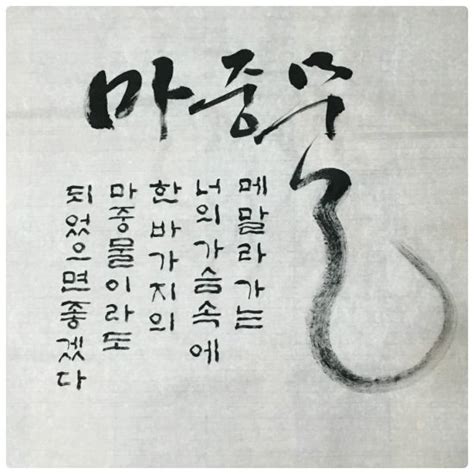 마중물
메말라 가는
너의 가슴속에
한 바가지의
마중물이라도
되었으면 좋겠다